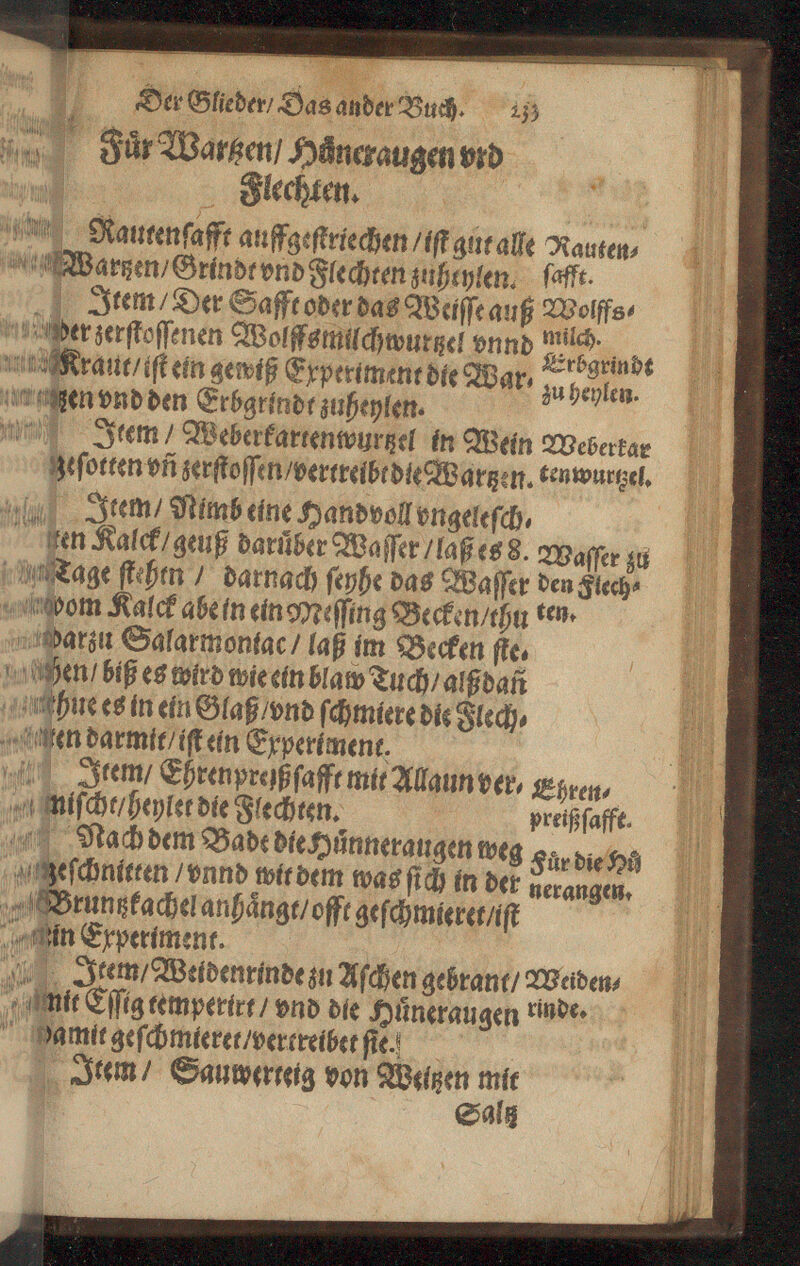 Der Glieder/ Das ander Buch. 233
Für Wartzen/ Hüneraugen vnd
Flechten.
Rautensafft auffgestriechen / ist gut alle
Wartzen/ Grindt vnd Flechten zuheylen.
Rauten-
safft.
Item / Der Safft oder das Weisse auß
der zerstossenen Wolffsmilchwurtzel vnnd
Kraut/ ist ein gewiß Experiment die War-
tzen vnd den Erbgrindt zuheylen.
Wolffs-
milch.
Erbgrindt
zu heylen.
Item / Weberkartenwurtzel in Wein
gesotten vñ zerstossen/ vertreibt die Wartzen.
Weberkar
tenwurtzel.
Item/ Nimb eine Handvoll vngelesch-
ten Kalck/ geuß darüber Wasser / laß es 8.
Tage stehen / darnach seyhe das Wasser
vom Kalck abe in ein Messing Becken/ thu
darzu Salarmoniac / laß im Becken ste-
hen/ biß es wird wie ein blaw Tuch/ alßdañ
thue es in ein Glaß/ vnd schmiere die Flech-
ten darmit/ ist ein Experiment.
Wasser zu
den Flech-
ten.
Item/ Ehrenpreißsafft mit Allaun ver-
mischt/ heylet die Flechten.
Ehren-
preißsafft.
Nach dem Bade die Hünneraugen weg
geschnitten / vnnd mit dem was sich in der
Bruntzkachel anhängt/ offt geschmieret/ ist
ein Experiment.
Für die Hü
nerangen.
Item/ Weidenrinde zu Aschen gebrant/
mit Essig temperirt / vnd die Hüneraugen
damit geschmieret/ vertreibet sie.
Weiden-
rinde.
Item / Sauwerteig von Weitzen mit
Saltz